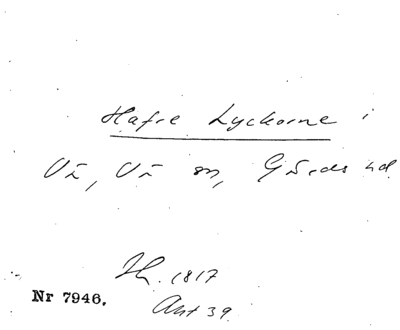 Hafre Lyckorne i
Vä, Vä sn, Gärds hd
Sk. 1817
Nr 7946.
Akt 39